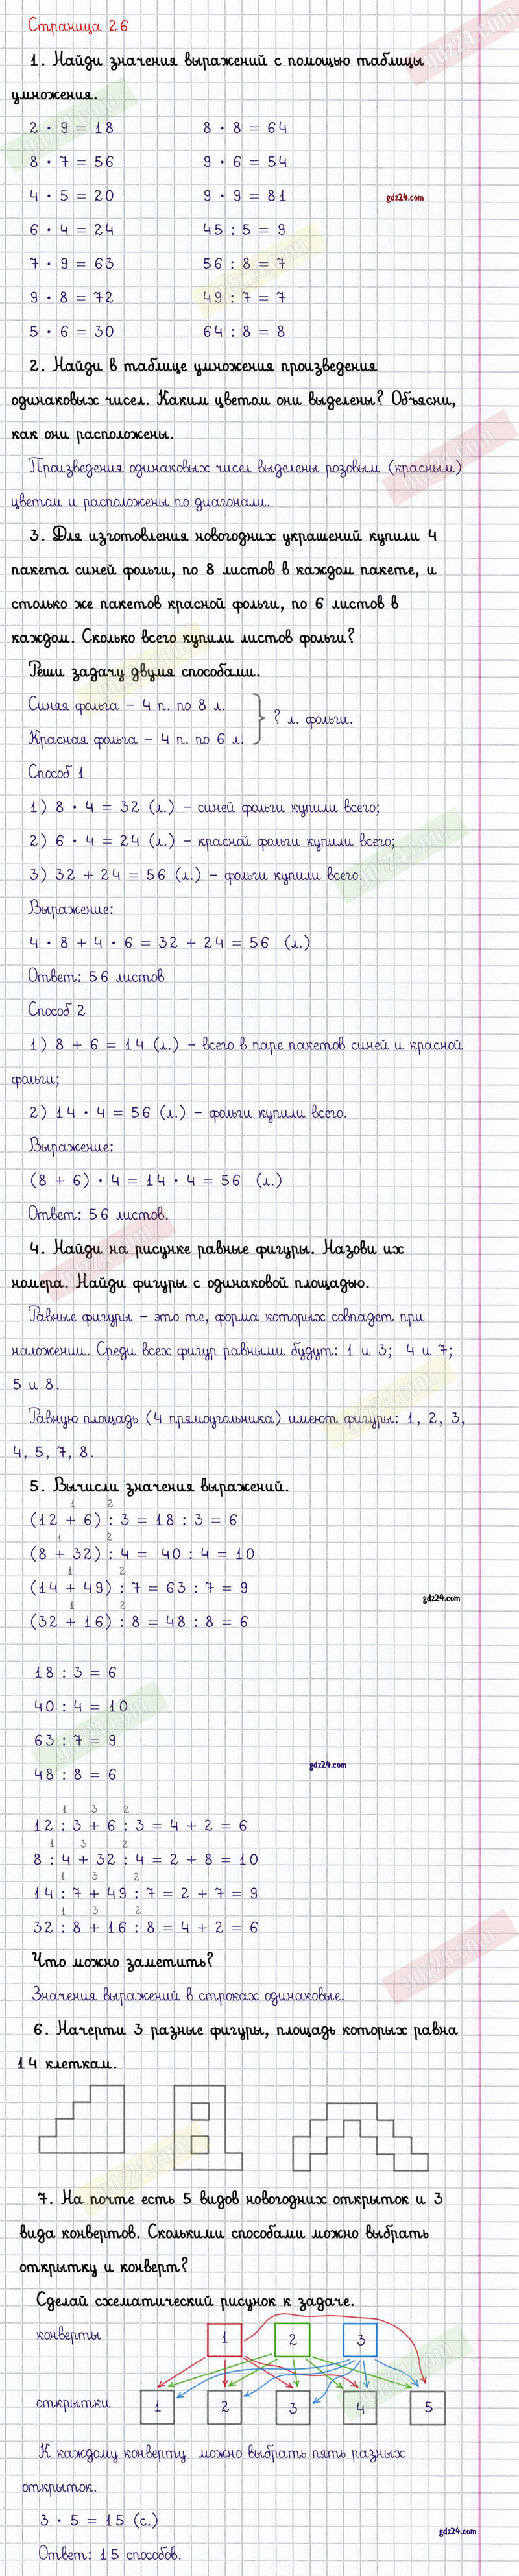 Страница 26
1. Найди значения выражений с помощью таблицы
умножения.
2 · 9 = 18 8 · 8 = 64
8 · 7 = 56 9 · 6 = 54
4 · 5 = 20 9 · 9 = 81
gdz24.com
6 · 4 = 24 45 : 5 = 9
7 · 9 = 63 56 : 8 = 7
9 · 8 = 72 49 : 7 = 7
5 · 6 = 30 64 : 8 = 8
2. Найди в таблице умножения произведения
одинаковых чисел. Каким цветом они выделены? Объясни,
как они расположены.
Произведения одинаковых чисел выделены розовым (красным)
цветом и расположены по диагонали.
3. Для изготовления новогодних украшений купили 4
пакета синей фольги, по 8 листов в каждом пакете, и
столько же пакетов красной фольги, по 6 листов в
каждом. Сколько всего купили листов фольги?
Реши задачу двумя способами.
Синяя фольга – 4 п. по 8 л.
? л. фольги.
Красная фольга – 4 п. по 6 л.
Способ 1
1) 8 · 4 = 32 (л.) – синей фольги купили всего;
2) 6 · 4 = 24 (л.) – красной фольги купили всего;
3) 32 + 24 = 56 (л.) – фольги купили всего.
Выражение:
4 · 8 + 4 · 6 = 32 + 24 = 56 (л.)
Ответ: 56 листов
Способ 2
1) 8 + 6 = 14 (л.) – всего в паре пакетов синей и красной
фольги;
2) 14 · 4 = 56 (л.) – фольги купили всего.
Выражение:
(8 + 6) · 4 = 14 · 4 = 56 (л.)
Ответ: 56 листов.
4. Найди на рисунке равные фигуры. Назови их
номера. Найди фигуры с одинаковой площадью.
Равные фигуры – это те, форма которых совпадет при
наложении. Среди всех фигур равными будут: 1 и 3; 4 и 7;
5 и 8.
Равную площадь (4 прямоугольника) имеют фигуры: 1, 2, 3,
4, 5, 7, 8.
5. Вычисли значения выражений.
1 2
(12 + 6) : 3 = 18 : 3 = 6
1 2
(8 + 32) : 4 = 40 : 4 = 10
1 2
(14 + 49) : 7 = 63 : 7 = 9
gdz24.com
1 2
(32 + 16) : 8 = 48 : 8 = 6
18 : 3 = 6
40 : 4 = 10
63 : 7 = 9
gdz24.com
48 : 8 = 6
1 3 2
12 : 3 + 6 : 3 = 4 + 2 = 6
1 3 2
8 : 4 + 32 : 4 = 2 + 8 = 10
1 3 2
14 : 7 + 49 : 7 = 2 + 7 = 9
1 3 2
32 : 8 + 16 : 8 = 4 + 2 = 6
Что можно заметить?
Значения выражений в строках одинаковые.
6. Начерти 3 разные фигуры, площадь которых равна
14 клеткам.
7. На почте есть 5 видов новогодних открыток и 3
вида конвертов. Сколькими способами можно выбрать
открытку и конверт?
Сделай схематический рисунок к задаче.
конверты 1 2 3
открытки 1 2 3 4 5
К каждому конверту можно выбрать пять разных
открыток.
3 · 5 = 15 (с.)
gdz24.com
Ответ: 15 способов.